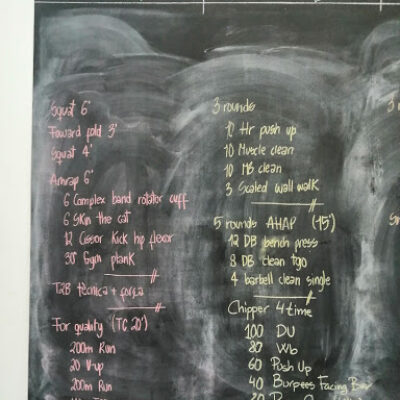 Squat 6'
Foward fold 3'
Squat 4'
Amrap 6'
6 Complex band rotator cuff
6 Skin the cat
12 Cissor kick hip flexor
30" Gym plank
T2B técnica + força
For quality (TC 20')
200m Run
20 V-up
200m Run
3 rounds
10 Hr push up
10 Muscle clean
10 MB clean
3 Scaled wall walk
5 rounds AHAP (15')
12 DB bench press
8 DB clean tgo
4 barbell clean single
Chipper 4 time
100 DU
80 Wb
60 Push Up
40 Burpees Facing Bar
20
3